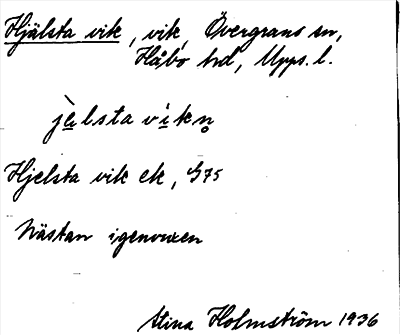 Hjälsta vik, vik, Övergrans sn,
Håbo hd, Upps. l.
jèlsta víkn̥
Hjelsta vik ek, G75
Nästan igenvuxen
Stina Holmström 1936